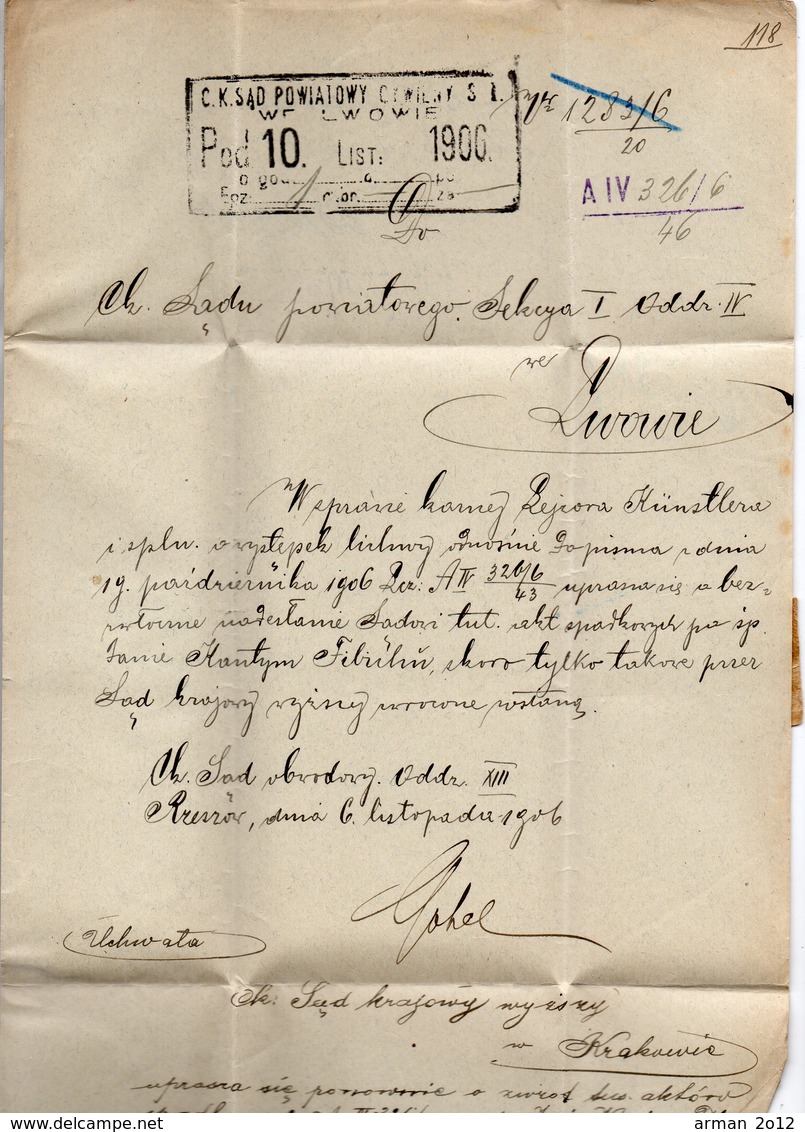 118
C.K. SĄD POWIATOWY CYWILNY S I.
WE LWOWIE
Pod 10. LIST: 1906.
o god
Egz: 1
Nr 1283/6
20
A IV 326/6
46
Do
Ck. Sądu powiatowego. Sekcya I. Oddz. IV
we
Lwowie
W sprawie karnej Lejzora Künstlera
i spln. o występek lichwy odnośnie do pisma z dnia
19. października 1906 Lcz: A IV 326/6 uprasza się o bez-
43
zwłoczne nadesłanie Sądowi tut. akt spadkowych po śp.
Janie Kantym, skoro tylko takowe przez
Sąd krajowy wyższy zwrócone zostaną.
Ck. Sąd obwodowy. Oddz. XIII
Rzeszów, dnia 6. listopada 1906
Uchwała
Ck: Sąd krajowy wyższy
w Krakowie
uprasza się ponownie o zwrot tus. aktów
arman 2012